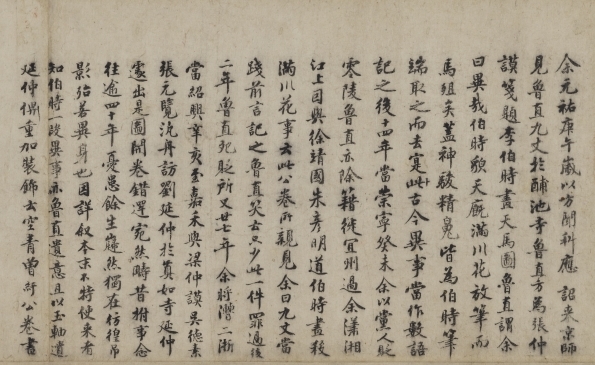 余元祐庚午歲以方聞科應 詔來京師
見魯直九丈於酺池寺魯直方為張仲
謨箋題李伯時畫天馬圖魯直謂余
曰異哉伯時貌天廐滿川花放筆而
馬殂矣蓋神駿精魄皆為伯時筆
端取之而去寔古今異事當作數語
記之後十四年當崇寧癸未余以黨人貶
零陵魯直亦除籍徙宜州過余瀟湘
江上因與徐靖國朱彥明道伯時畫殺
滿川花事云此公卷所親見余曰九丈當
踐前言記之魯直笑云只少此一件罪過後
二年魯直死貶所又廿七年余將漕二浙
當紹興辛亥至嘉禾與梁仲謨吳德素
張元覽汎舟訪劉延仲於真如寺延仲
遽出是圖開卷錯愕宛然疇昔拊事念
往逾四十年憂患餘生巋然獨在彷徨弔
影殆若異身也因詳叙本末不特使來者
知伯時一段異事亦魯直遺意且以玉軸遺
延仲俾重加裝飾云空青曾紆公卷書